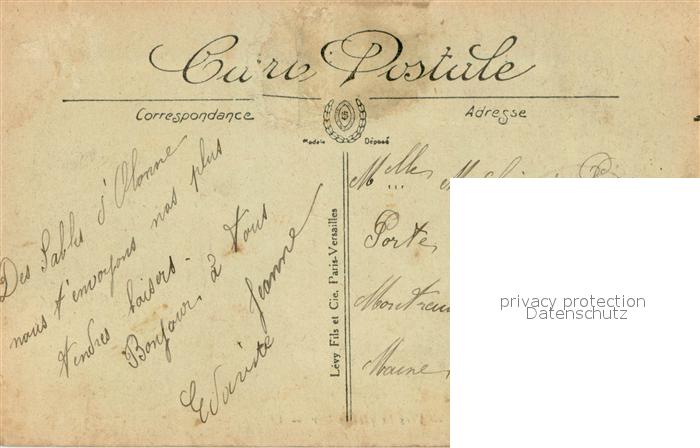 Carte Postale
Correspondance
Adresse
Modèle Déposé
Des Sables d'Olonne
nous t'envoyons nos plus
tendres baisers -
Bonjour à tous
Évariste Jeanne
Lévy, Fils et Cie, Paris-Versailles
Melles
Porte
Maine
privacy protection
Datenschutz